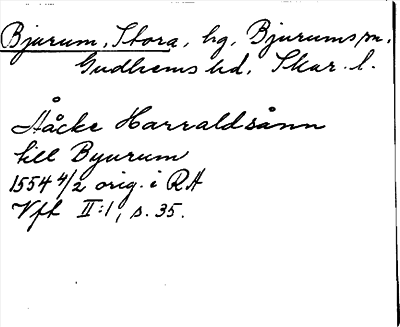 Bjurum, Stora, hg, Bjurums sn,
Gudhems hd, Skar. l.
Ååcke Harraldsånn
till Byurum
1554 4/2 orig. i RA
Vft II:1, s. 35.